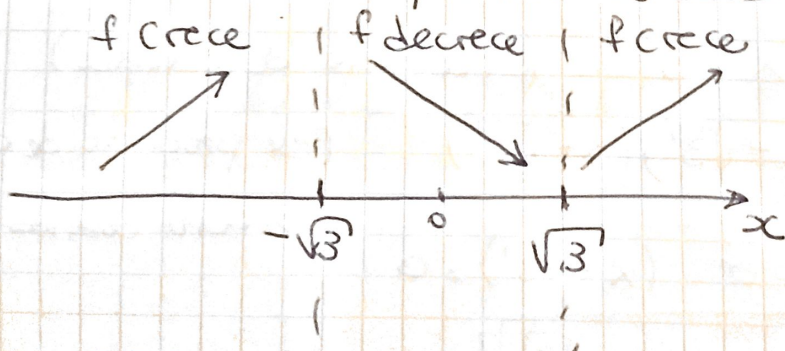 f crece f decrece f crece
-√3 0 √3 x